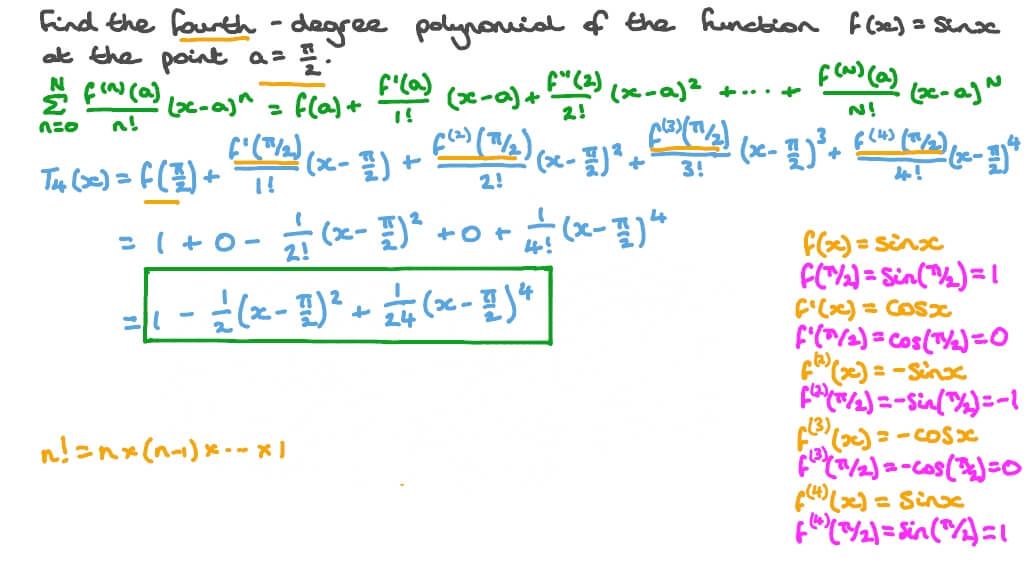 Find the fourth-degree polynomial of the function f(x) = sinx
at the point a = π/2.
∑_{n=0}^{N} f^(n)(a)/n! (x-a)^n = f(a) + f'(a)/1! (x-a) + f''(2)/2! (x-a)^2 + ... + f^(N)(a)/N! (x-a)^N
T₄(x) = f(π/2) + f'(π/2)/1! (x - π/2) + f^(2)(π/2)/2! (x - π/2)^2 + f^(3)(π/2)/3! (x - π/2)^3 + f^(4)(π/2)/4! (x - π/2)^4
= 1 + 0 - 1/2! (x - π/2)^2 + 0 + 1/4! (x - π/2)^4
= 1 - 1/2 (x - π/2)^2 + 1/24 (x - π/2)^4
n! = n × (n-1) × ... × 1
f(x) = sinx
f(π/2) = sin(π/2) = 1
f'(x) = cosx
f'(π/2) = cos(π/2) = 0
f^(2)(x) = -sinx
f^(2)(π/2) = -sin(π/2) = -1
f^(3)(x) = -cosx
f^(3)(π/2) = -cos(π/2) = 0
f^(4)(x) = sinx
f^(4)(π/2) = sin(π/2) = 1